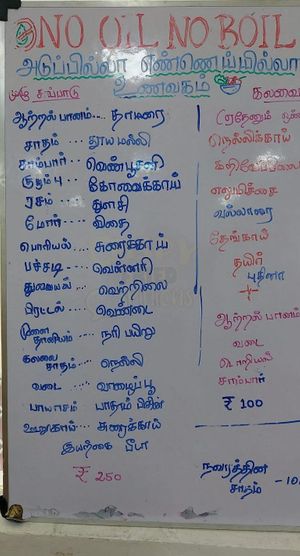 NO OIL NO BOIL
அடுப்பில்லா எண்ணெய்யில்லா
உணவகம்
முழு சாப்பாடு
ஆற்றல் பானம்... தாமரை
சாதம் ... தூயமல்லி
சாம்பார் ... வெண்பூசணி
குழம்பு ... கோவைக்காய்
ரசம் ... துளசி
மோர் ... விதை
பொரியல் ... சுரைக்காய்
பச்சடி ... வெள்ளரி
துவையல் ... வெற்றிலை
பிரட்டல் ... வெண்டை
முளை தானியம் ... நரி பயிறு
கலவை சாதம் ... நெல்லி
வடை ... வாழைப்பூ
பாயாசம் ... பாதாம் பிசின்
ஊறுகாய் ... சுரைக்காய்
இயற்கை பீடா
₹ 250
கலவை
ஏதேனும் ஒன்
நெல்லிக்காய்
கறிவேப்பிலை
எலுமிச்சை
வல்லாரை
தேங்காய்
தயிர்
புதினா
+
ஆற்றல் பானம்
வடை
பொரியல்
சாம்பார்
₹ 100
நவரத்தின
சாதம் - 10